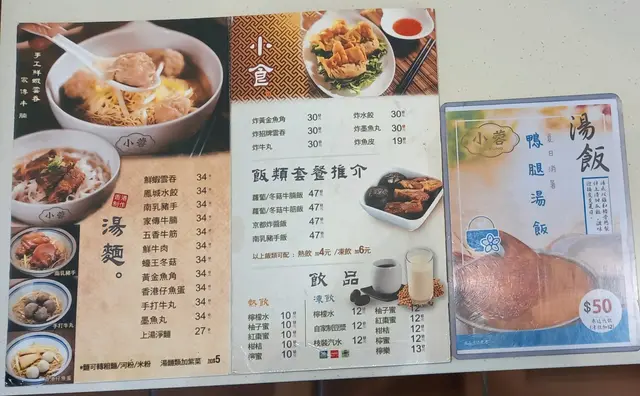 手工鮮蝦雲吞
家傳牛腩
小蓉
小蓉
南乳豬手
手打牛丸
香港仔魚蛋
湯麵。
鮮蝦雲吞 34
鳳城水餃 34
南乳豬手 34
家傳牛腩 34
五香牛筋 34
鮮牛肉 34
蠔王冬菇 34
黃金魚角 34
香港仔魚蛋 34
手打牛丸 34
墨魚丸 34
上湯淨麵 27
麵可轉粗麵/河粉/米粉
湯麵類加紫菜 5
小食
炸黃金魚角 30
炸招牌雲吞 30
炸牛丸 30
炸水餃 30
炸墨魚丸 30
炸魚皮 19
飯類套餐推介
蘿蔔/冬菇牛腩飯 47
蘿蔔/冬菇牛筋飯 47
京都炸醬飯 47
南乳豬手飯 47
以上飯類可配：熱飲 加4元/凍飲 加6元
飲品
熱飲
檸檬水 10
柚子蜜 10
紅棗蜜 10
柑桔 10
檸蜜 10
凍飲
檸檬水 12
自家制豆漿 12
枝裝汽水 12
柚子蜜 12
紅棗蜜 12
柑桔 12
檸蜜 12
檸樂 13
小蓉
湯飯
夏日消暑
鴨腿湯飯
$50